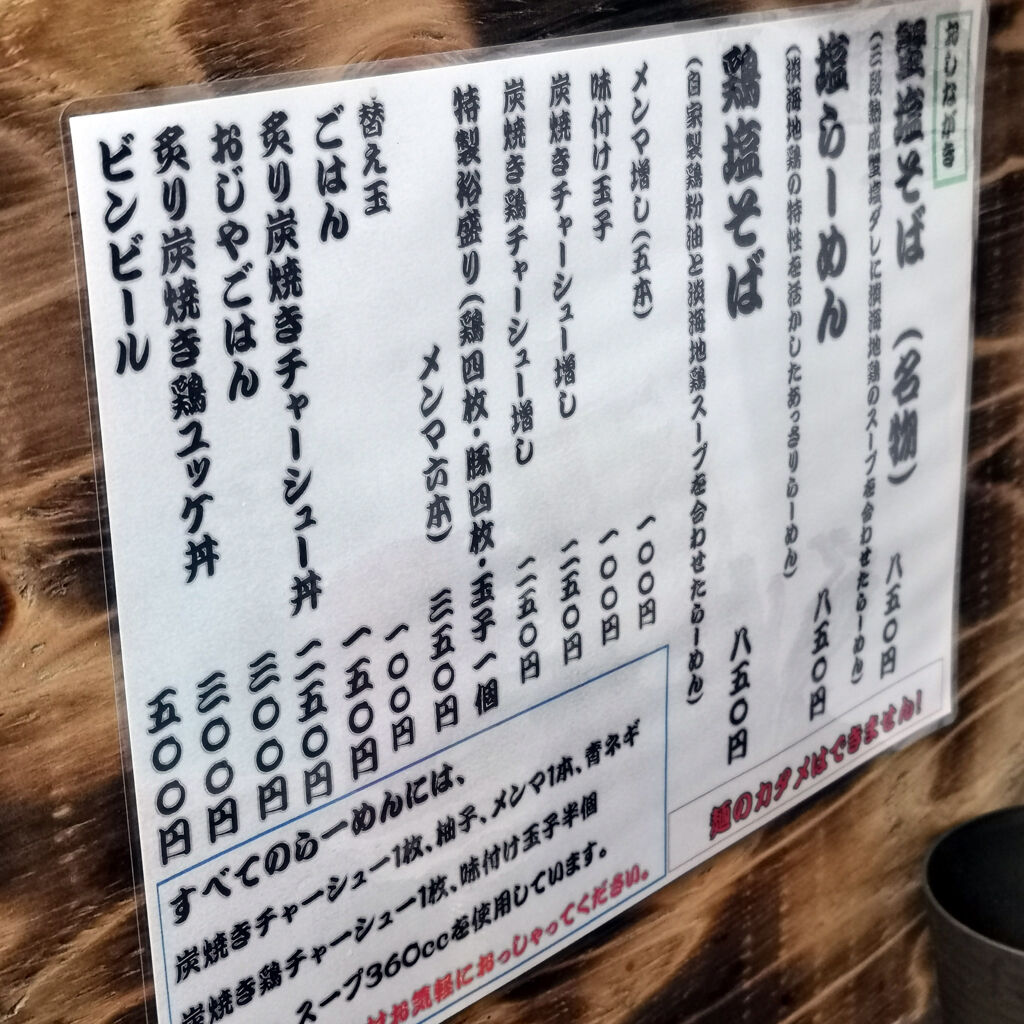 おしながき
蟹塩そば（名物） 八五〇円
（三段熟成蟹塩ダレに淡海地鶏のスープを合わせたらーめん）
塩らーめん 八五〇円
（淡海地鶏の特性を活かしたあっさりらーめん）
鶏塩そば 八五〇円
（自家製鶏粉油と淡海地鶏スープを合わせたらーめん）
メンマ増し（五本） 一〇〇円
味付け玉子 一〇〇円
炭焼きチャーシュー増し 二五〇円
炭焼き鶏チャーシュー増し 二五〇円
特製裕盛り（鶏四枚・豚四枚・玉子一個
メンマ六本） 三五〇円
替え玉 一〇〇円
ごはん 一五〇円
炙り炭焼きチャーシュー丼 二五〇円
おじやごはん 三〇〇円
炙り炭焼き鶏ユッケ丼 三〇〇円
ビンビール 五〇〇円
麺のカタメはできません！
すべてのらーめんには、
炭焼きチャーシュー1枚、柚子、メンマ1本、青ネギ
炭焼き鶏チャーシュー1枚、味付け玉子半個
スープ360ccを使用しています。
はお気軽におっしゃってください。